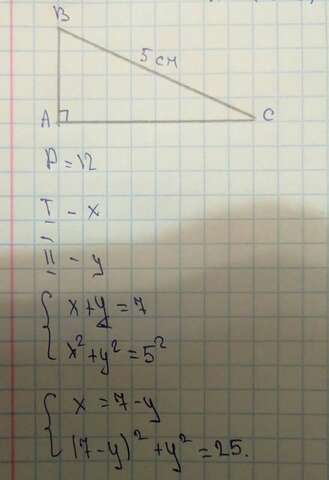 B
5 см
A
C
P = 12
I - x
II - y
x + y = 7
x² + y² = 5²
x = 7 - y
(7 - y)² + y² = 25.